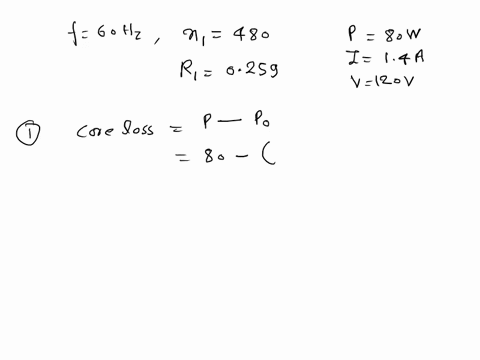 f = 60 Hz, n₁ = 480
R₁ = 0.259
P = 80W
I = 1.4A
V = 120V
① Core loss = P — P₀
= 80 – (